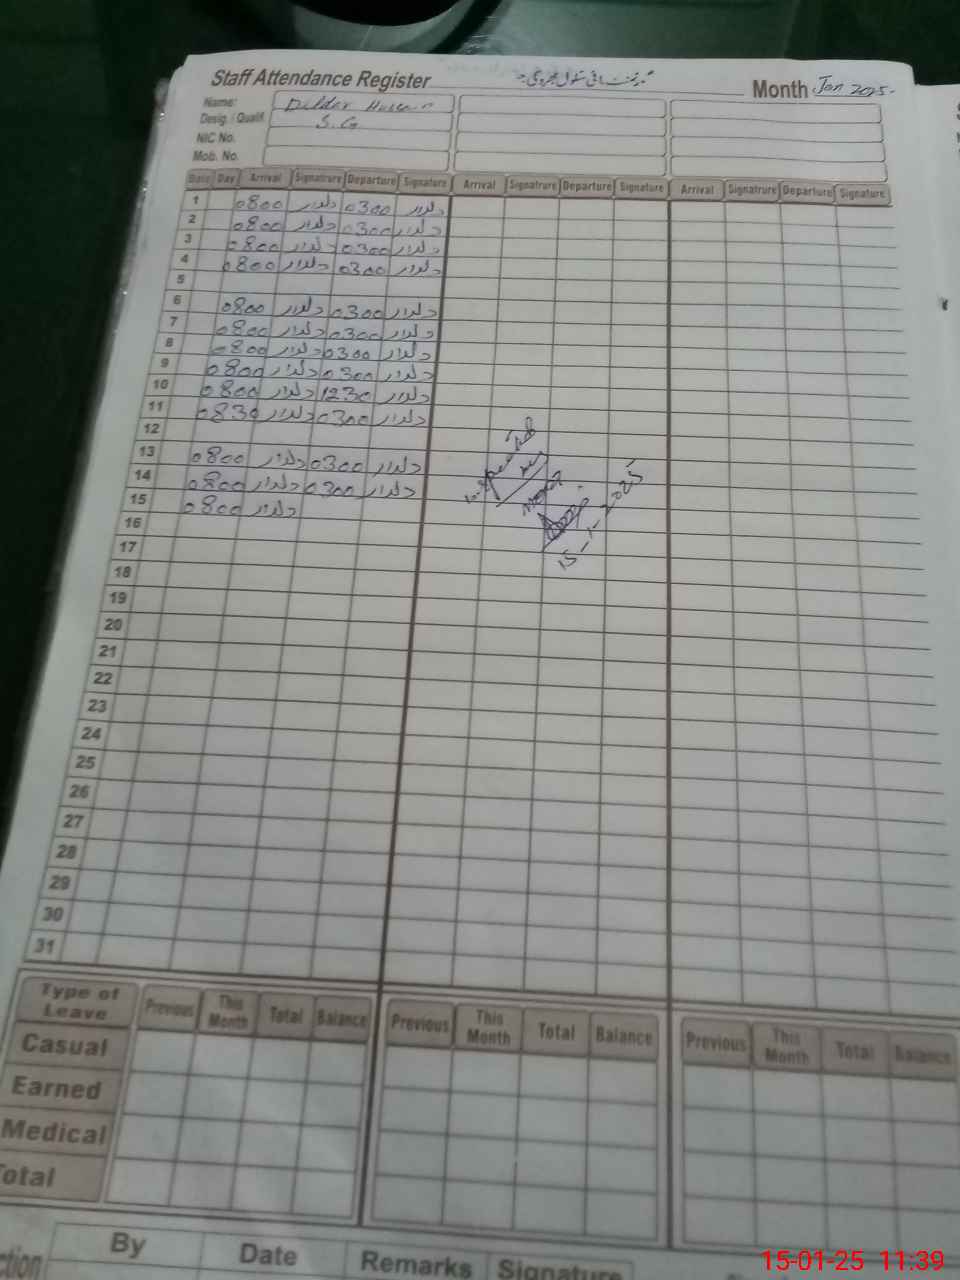 Staff Attendance Register
Month Jan 2025-
Name: Dildar
Desig. / Qualif. S.G
NIC No.
Mob. No.
Date Day Arrival Signatrure Departure Signature Arrival Signatrure Departure Signature Arrival Signatrure Departure Signature
1 0800 دلدار 0300 دلدار
2 0800 دلدار 0300 دلدار
3 0800 دلدار 0300 دلدار
4 0800 دلدار 0300 دلدار
5
6 0800 دلدار 0300 دلدار
7 0800 دلدار 0300 دلدار
8 0800 دلدار 0300 دلدار
9 0800 دلدار 0300 دلدار
10 0800 دلدار 1230 دلدار
11 0830 دلدار 0300 دلدار
12
13 0800 دلدار 0300 دلدار
14 0800 دلدار 0300 دلدار
15 0800 دلدار
15-1-2025
16
17
18
19
20
21
22
23
24
25
26
27
28
29
30
31
Type of Leave Previous This Month Total Balance Previous This Month Total Balance Previous This Month Total Balance
Casual
Earned
Medical
Total
By Date Remarks Signature
15-01-25 11:39